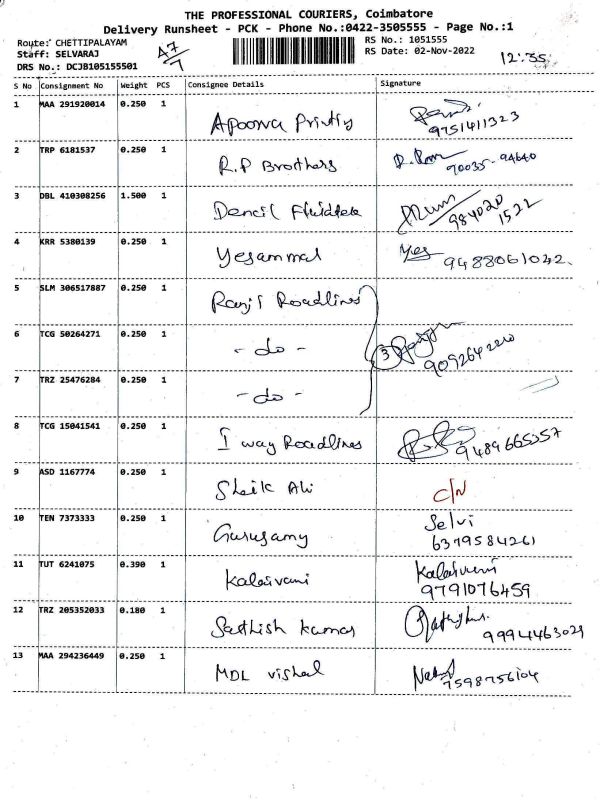 THE PROFESSIONAL COURIERS, Coimbatore
Delivery Runsheet - PCK - Phone No.:0422-3505555 - Page No.:1
Route: CHETTIPALAYAM
RS No.: 1051555
Staff: SELVARAJ
RS Date: 02-Nov-2022
12:35
DRS No.: DCJB105155501
S No Consignment No Weight PCS Consignee Details Signature
1 MAA 291920014 0.250 1 Apoorva Printing
9751411323
2 TRP 6181537 0.250 1 R.P Brothers
90035-94640
3 DBL 410308256 1.500 1 Dencil Fluidtek
984020
1522
4 KRR 5380139 0.250 1 Yesammal Yes
9488061042.
5 SLM 306517887 0.250 1 Ranjit Roadlines
6 TCG 50264271 0.250 1 - do - 3
909264 zero
7 TRZ 25476284 0.250 1 - do -
8 TCG 15041541 0.250 1 I way Roadlines
9489665357
9 ASD 1167774 0.250 1 Sheik Ali C/N
10 TEN 7373333 0.250 1 Gurusamy Selvi
6379584261
11 TUT 6241075 0.390 1 Kalaivani Kalaivani
9791076459
12 TRZ 205352033 0.180 1 Sathish kumar
9994463029
13 MAA 294236449 0.250 1 MDL vishal
7598756104